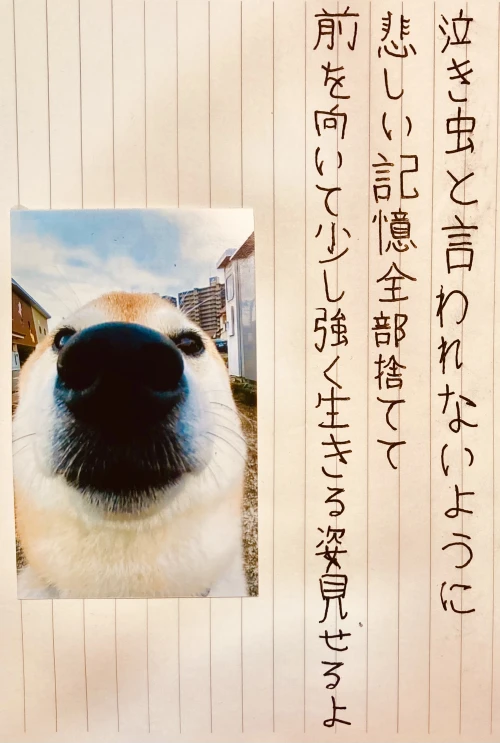 泣き虫と言われないように
悲しい記憶全部捨てて
前を向いて少し強く生きる姿見せるよ